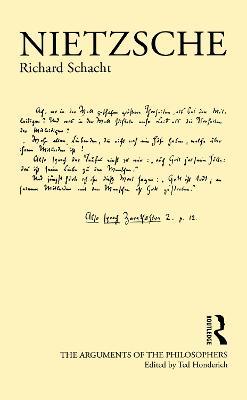 NIETZSCHE
Richard Schacht
Ach, wo in der Welt geschahen grössere Thorheiten, als bei den Mit-
leidigen? Und was in der Welt stiftete mehr Leid als die Thorheiten
der Mitleidigen?
Wehe allen Liebenden, die nicht noch eine Höhe haben, welche über
ihrem Mitleiden ist!
Also sprach der Teufel einst zu mir: „auch Gott hat seine Hölle:
das ist seine Liebe zu den Menschen."
Und jüngst hörte ich ihn diess Wort sagen: „Gott ist todt; an
seinem Mitleiden mit den Menschen ist Gott gestorben."
Also sprach Zarathustra 2. p. 12.
R
ROUTLEDGE
THE ARGUMENTS OF THE PHILOSOPHERS
Edited by Ted Honderich